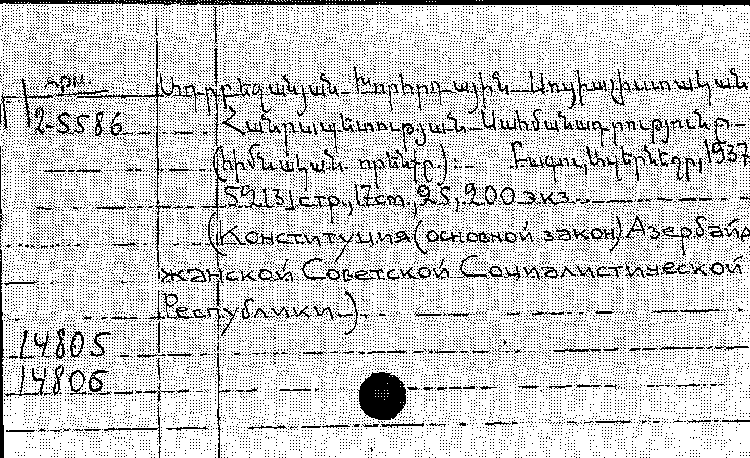 арм.
2-5586
Ադրբեջանյան Խորհրդային Սոցիալիստական
Հանրապետության Սահմանադրությունը
(հիմնական օրենքը). Բաքու, 1937
52 [3] стр., 17 cm, 25,200 экз.
(Конституция (основной закон) Азербайд
жанской Советской Социалистической
Республики).
14805
14806